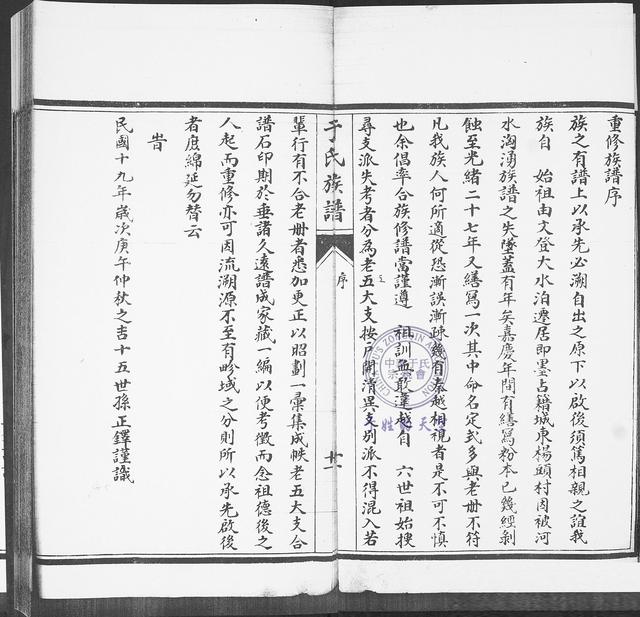 重修族譜序
族之有譜上以承先必溯自出之原下以啟後須篤相親之誼我
族自 始祖由文登大水泊遷居即墨占籍城東楊頭村因被河
水淘湧族譜之失墜蓋有年矣嘉慶年間有繕寫粉本已幾經剥
蝕至光緒二十七年又繕寫一次其中命名定式多與老冊不符
凡我族人何所適從恐漸誤漸疎幾有秦越相視者是不可不慎
也余倡率合族修譜當謹遵 祖訓孟敢違越自 六世祖始搜
尋支派失考者分為老五大支按戶開清異支別派不得混入若
之
于氏族譜
序
十一
輩行有不合老冊者悉加更正以昭劃一彙集成帙老五大支合
譜石印期於垂諸久遠譜成家藏一編以便考徵而念祖德後之
人起而重修亦可因流溯源不至有畛域之分則所以承先啟後
者庶綿延勿替云
旹
民國十九年歲次庚午仲秋之吉十五世孫正鐸謹識
中華于氏
宗親會
姓 天